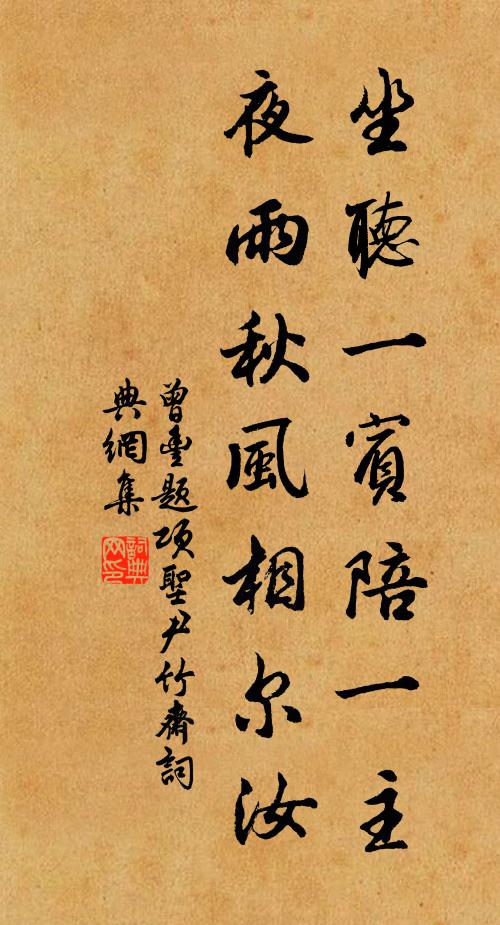 坐聽一賓陪一主
夜雨秋風相尔汝
曾豊題項聖尹竹齋詞
典網集
詞典
网印